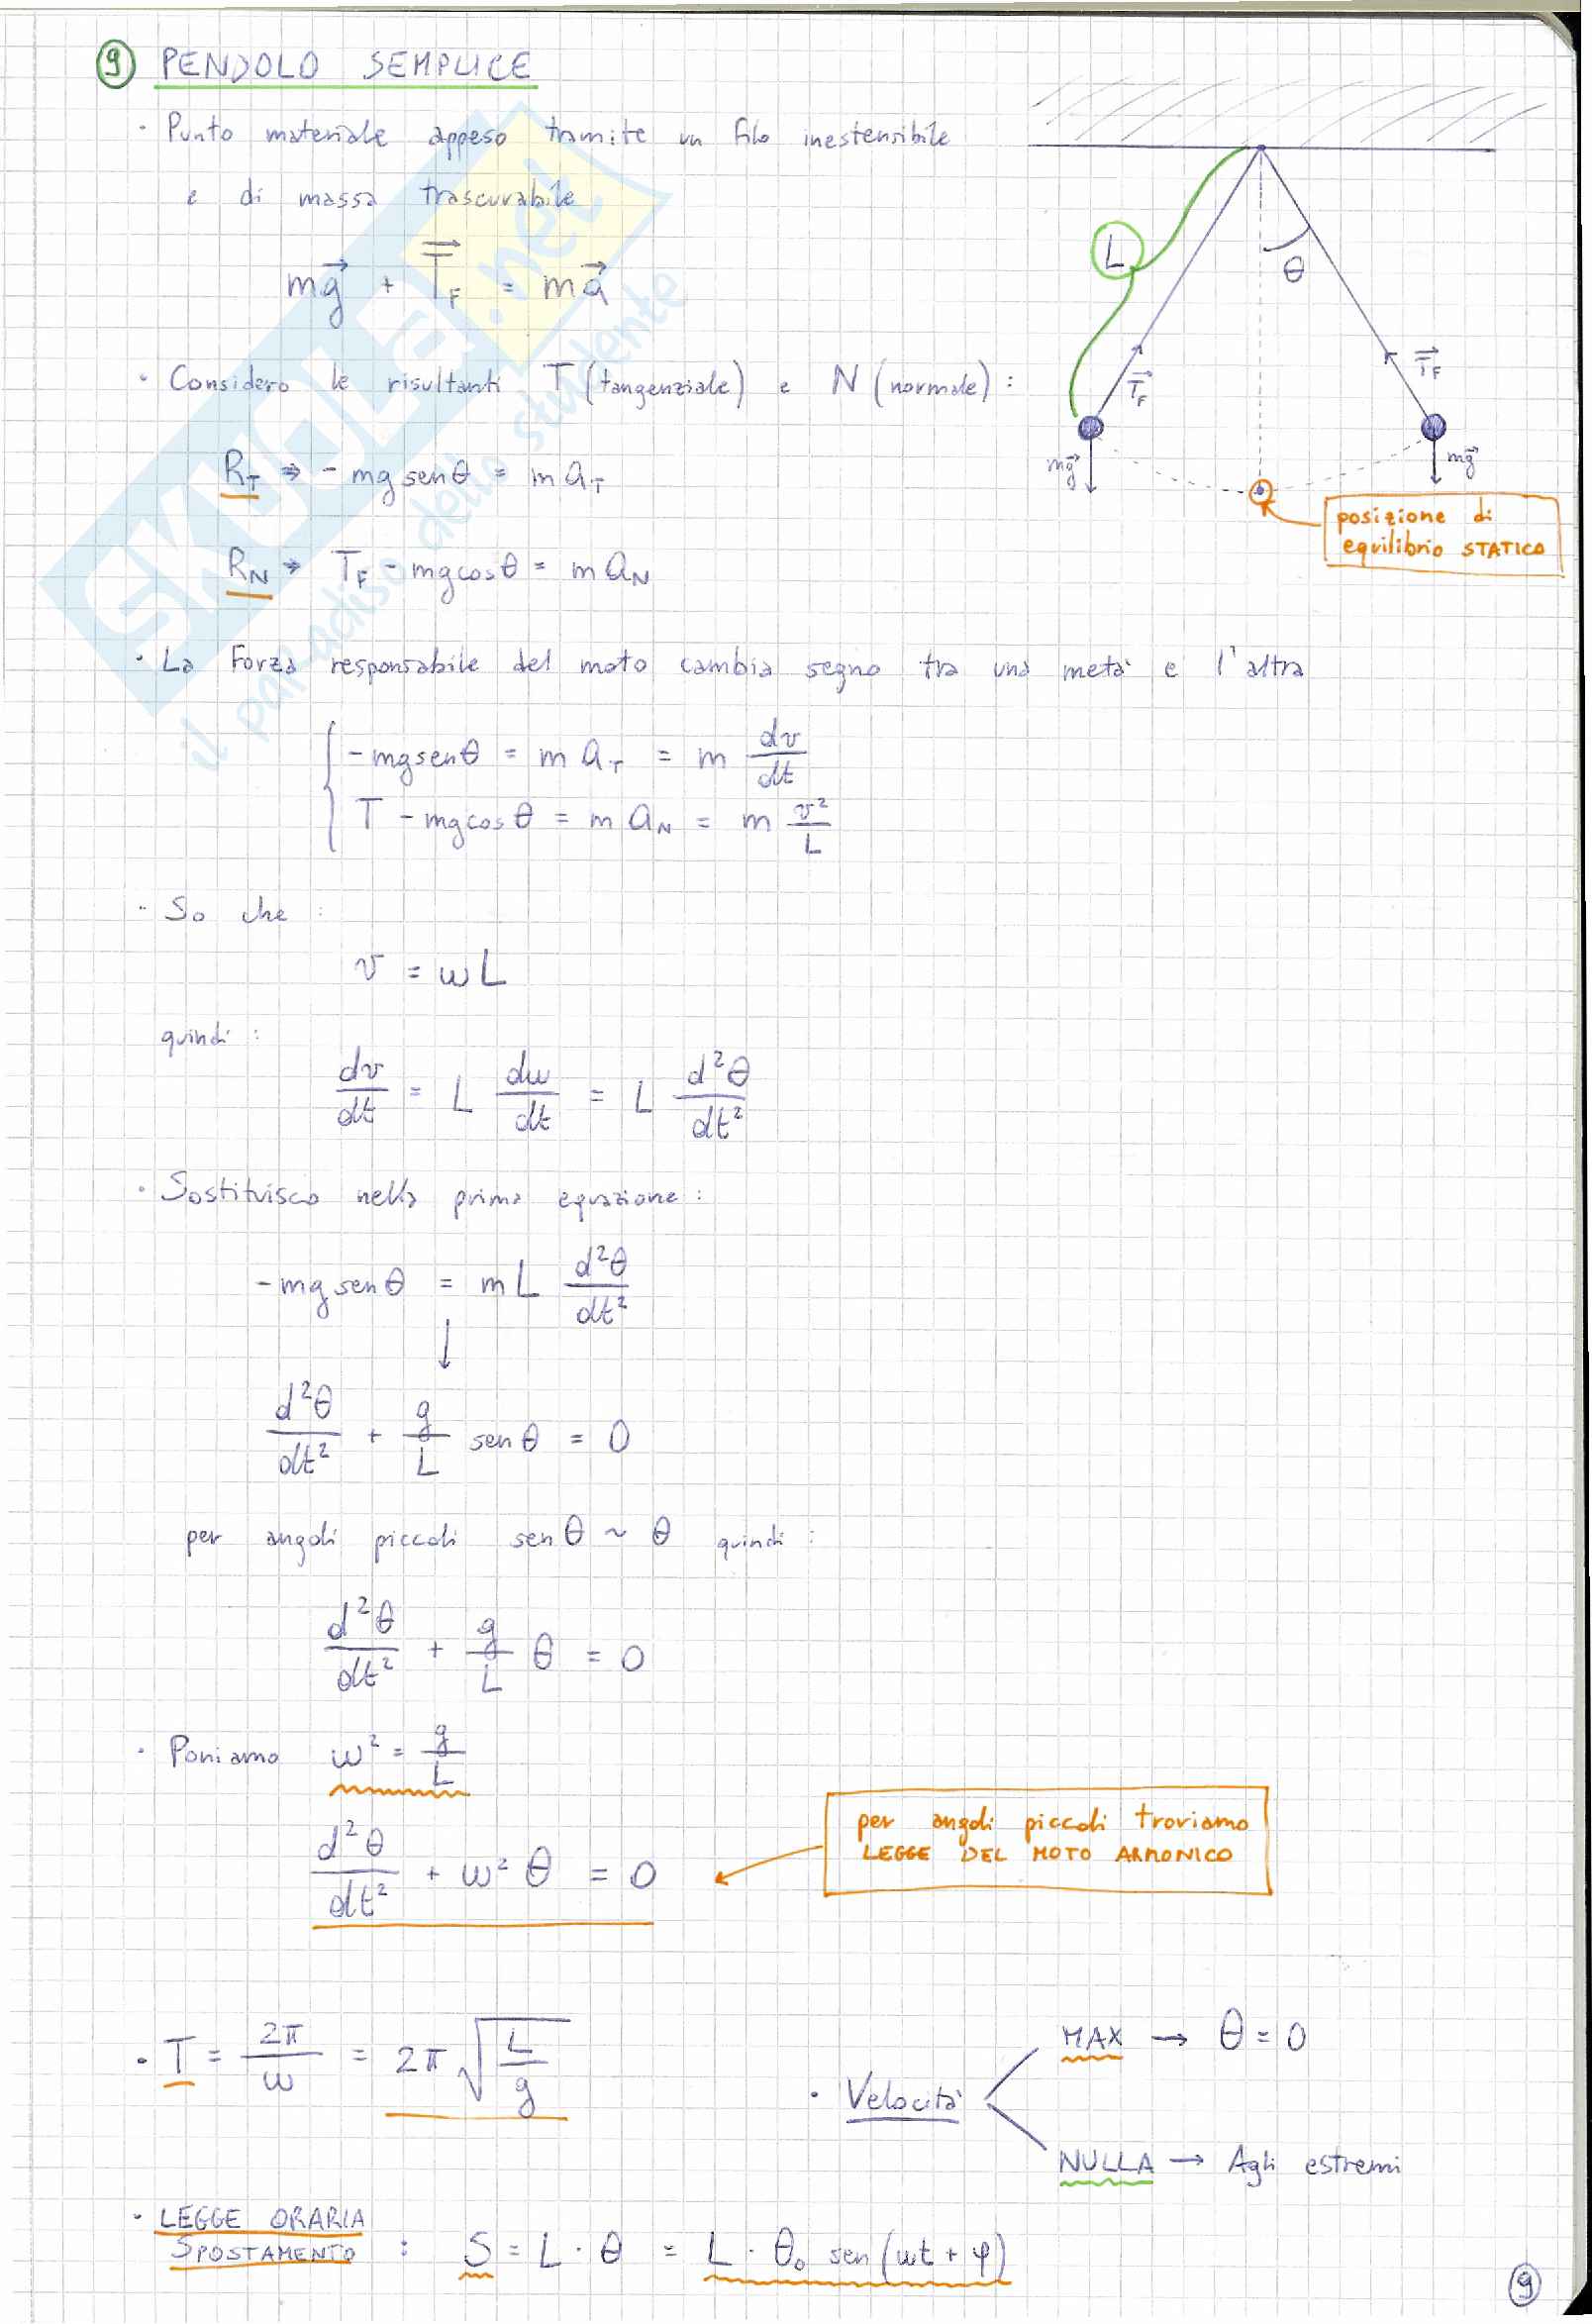 9 PENDOLO SEMPLICE
· Punto materiale appeso tramite un filo inestensibile
e di massa trascurabile
mg⃗ + T⃗_F = ma⃗
L
θ
T⃗_F
T⃗_F
mg⃗
mg⃗
posizione di
equilibrio STATICO
· Considero le risultanti T (tangenziale) e N (normale) :
R_T ⇒ - mg senθ = m a_T
R_N ⇒ T_F - mg cosθ = m a_N
· La Forza responsabile del moto cambia segno tra una metà e l'altra
- mg senθ = m a_T = m dv/dt
T - mg cosθ = m a_N = m v²/L
· So che :
v = ωL
quindi :
dv/dt = L dω/dt = L d²θ/dt²
· Sostituisco nella prima equazione :
- mg senθ = mL d²θ/dt²
↓
d²θ/dt² + g/L senθ = 0
per angoli piccoli senθ ~ θ quindi :
d²θ/dt² + g/L θ = 0
· Poniamo ω² = g/L
d²θ/dt² + ω² θ = 0
per angoli piccoli troviamo
LEGGE DEL MOTO ARMONICO
· T = 2π/ω = 2π √(L/g)
· Velocità
MAX → θ = 0
NULLA → Agli estremi
· LEGGE ORARIA
SPOSTAMENTO : S = L · θ = L · θ₀ sen (ωt + φ)
9
SKUOLA.net
il paradiso dello studente